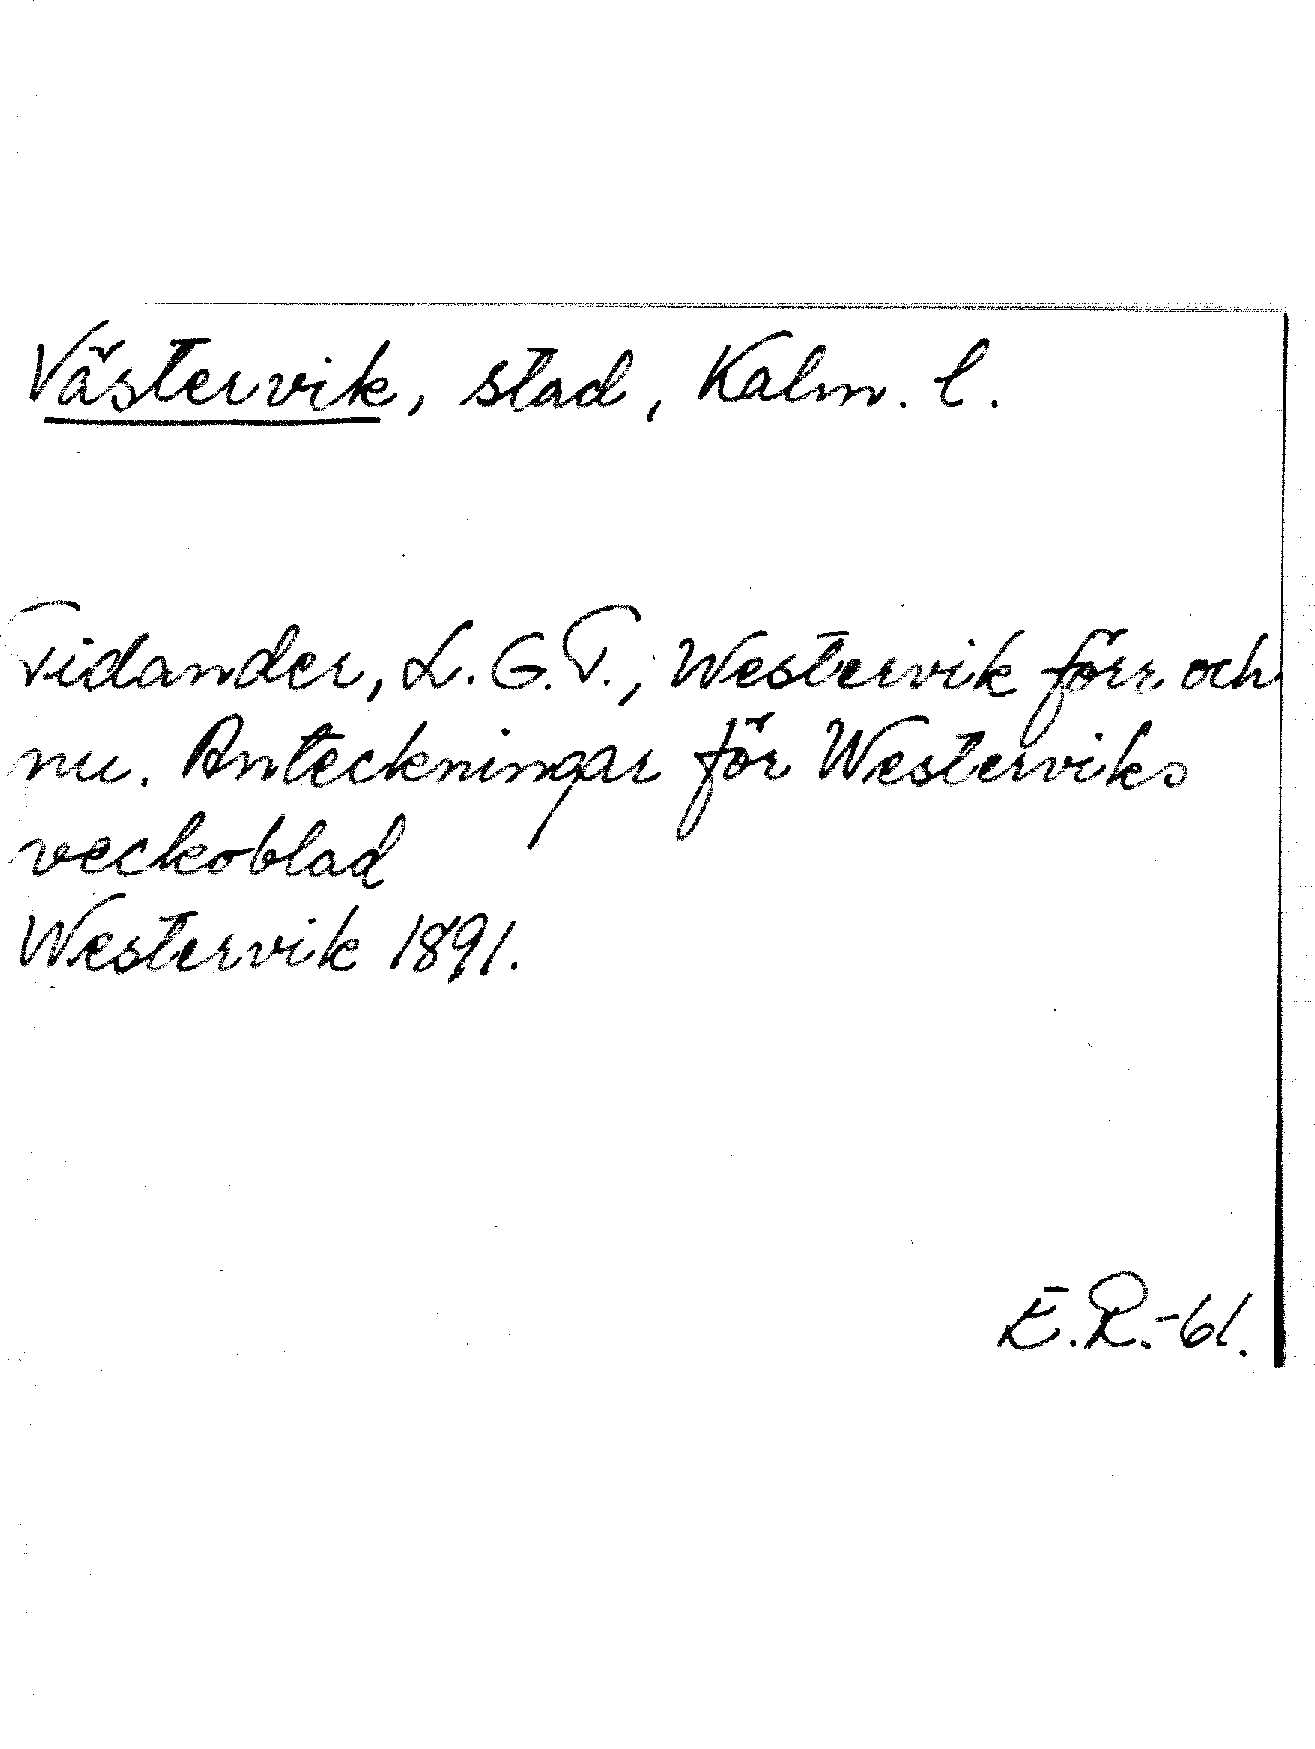 Västervik, stad, Kalm. l.
Tidander, L. G. T., Westervik förr och
nu. Anteckningar för Westerviks
veckoblad
Westervik 1891.
E. R.-61.